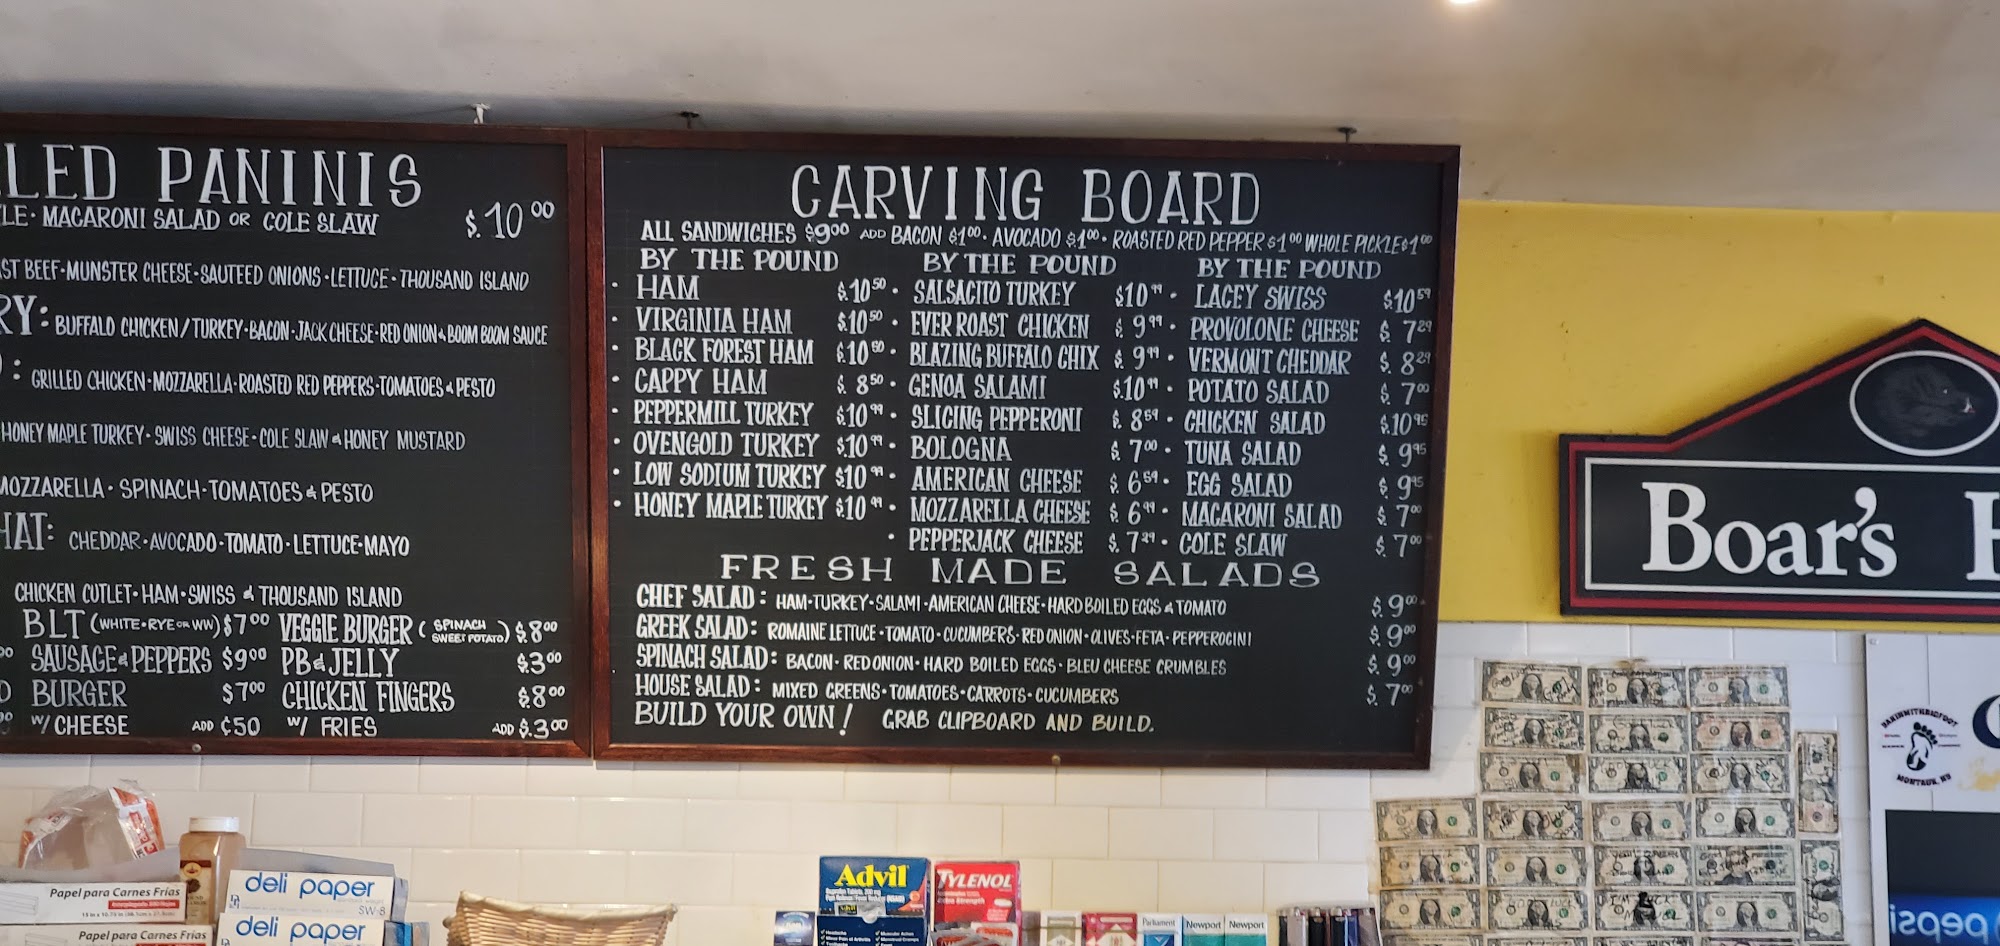 LED PANINIS
LE · MACARONI SALAD OR COLE SLAW $.10 00
ST BEEF · MUNSTER CHEESE · SAUTEED ONIONS · LETTUCE · THOUSAND ISLAND
RY: BUFFALO CHICKEN / TURKEY · BACON · JACK CHEESE · RED ONION & BOOM BOOM SAUCE
: GRILLED CHICKEN · MOZZARELLA · ROASTED RED PEPPERS · TOMATOES & PESTO
HONEY MAPLE TURKEY · SWISS CHEESE · COLE SLAW & HONEY MUSTARD
MOZZARELLA · SPINACH · TOMATOES & PESTO
HAT: CHEDDAR · AVOCADO · TOMATO · LETTUCE · MAYO
CHICKEN CUTLET · HAM · SWISS & THOUSAND ISLAND
BLT (WHITE · RYE OR WW) $7 00 VEGGIE BURGER (SPINACH SWEET POTATO) $.8 00
SAUSAGE & PEPPERS $9 00 PB & JELLY $.3 00
BURGER $7 00 CHICKEN FINGERS $.8 00
W/ CHEESE ADD ¢50 W/ FRIES ADD $.3.00
CARVING BOARD
ALL SANDWICHES $9 00 ADD BACON $1 00 · AVOCADO $1 00 · ROASTED RED PEPPER $1 00 WHOLE PICKLE $1 00
BY THE POUND BY THE POUND BY THE POUND
· HAM $.10 50 · SALSACITO TURKEY $10 99 · LACEY SWISS $10 59
· VIRGINIA HAM $.10 50 · EVER ROAST CHICKEN $.9 99 · PROVOLONE CHEESE $.7 29
· BLACK FOREST HAM $.10 50 · BLAZING BUFFALO CHIX $.9 99 · VERMONT CHEDDAR $.8 29
· CAPPY HAM $.8 50 · GENOA SALAMI $.10 99 · POTATO SALAD $.7 00
· PEPPERMILL TURKEY $.10 99 · SLICING PEPPERONI $.8 69 · CHICKEN SALAD $.10 95
· OVENGOLD TURKEY $.10 99 · BOLOGNA $.7 00 · TUNA SALAD $.9 95
· LOW SODIUM TURKEY $10 99 · AMERICAN CHEESE $.6 59 · EGG SALAD $.9 95
· HONEY MAPLE TURKEY $10 99 · MOZZARELLA CHEESE $.6 99 · MACARONI SALAD $.7 00
· PEPPERJACK CHEESE $.7 29 · COLE SLAW $.7 00
FRESH MADE SALADS
CHEF SALAD: HAM · TURKEY · SALAMI · AMERICAN CHEESE · HARD BOILED EGGS & TOMATO $.9 00
GREEK SALAD: ROMAINE LETTUCE · TOMATO · CUCUMBERS · RED ONION · OLIVES · FETA · PEPPEROCINI $.9 00
SPINACH SALAD: BACON · RED ONION · HARD BOILED EGGS · BLEU CHEESE CRUMBLES $.9 00
HOUSE SALAD: MIXED GREENS · TOMATOES · CARROTS · CUCUMBERS $.7 00
BUILD YOUR OWN! GRAB CLIPBOARD AND BUILD.
Boar's
MONTAUK, NY
pepsi
Papel para Carnes Frías
Papel para Carnes Frías
deli paper
SW-8
deli paper
Advil
TYLENOL
Parliament
Newport
Newport